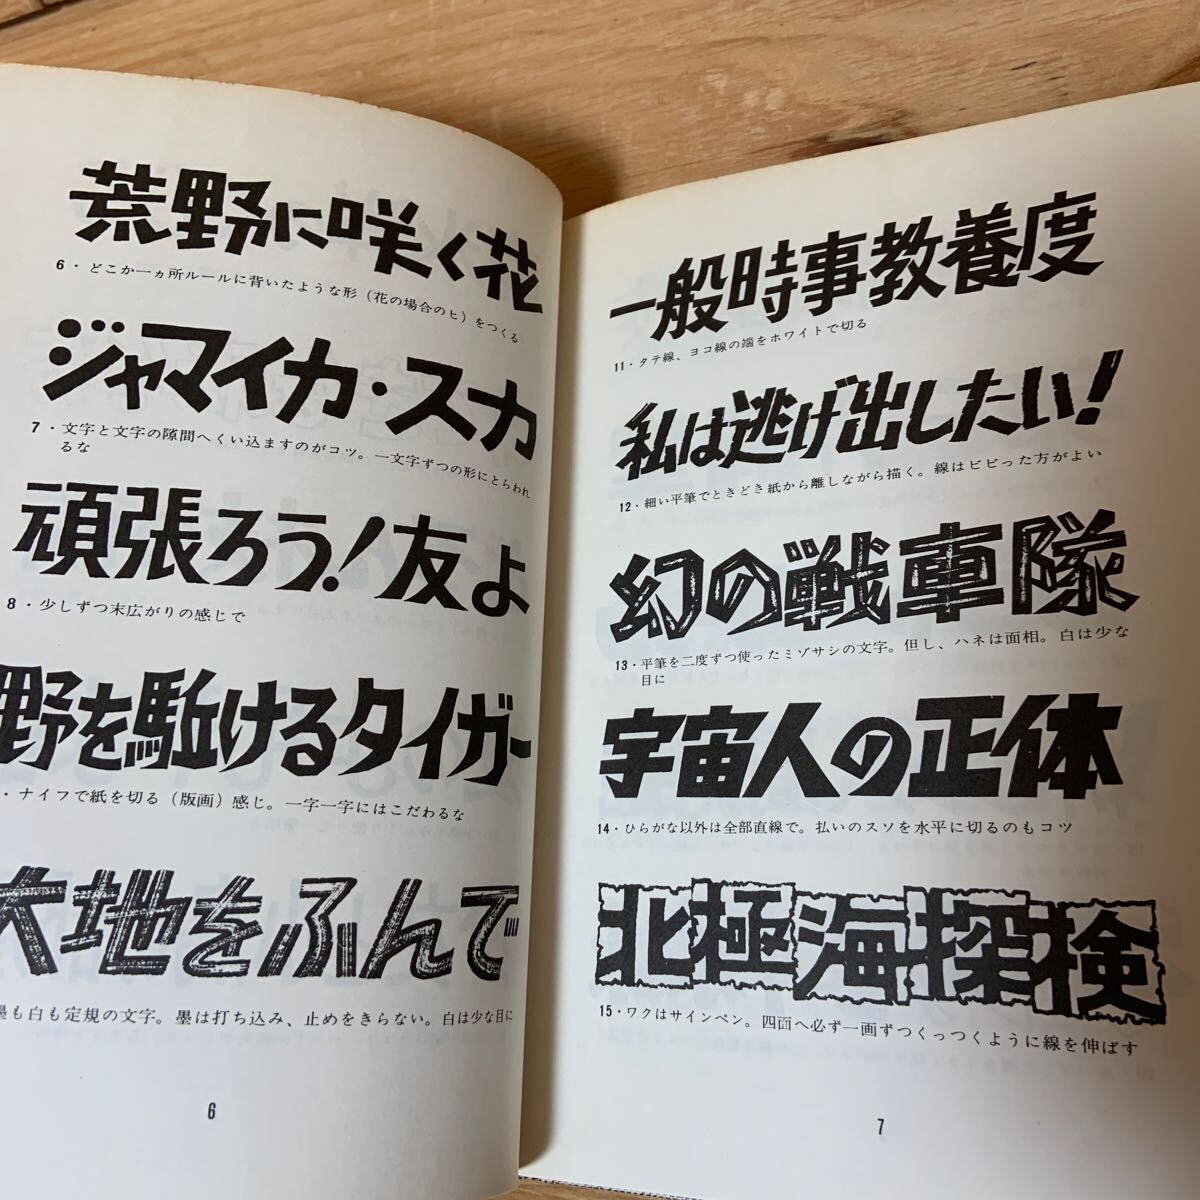 荒野に咲く花
6・どこか一ヵ所ルールに背いたような形（花の場合のヒ）をつくる
ジャマイカ・スカ
7・文字と文字の隙間へくい込ますのがコツ。一文字ずつの形にとらわれ
るな
頑張ろう！友よ
8・少しずつ末広がりの感じで
野を駈けるタイガー
・ナイフで紙を切る（版画）感じ。一字一字にはこだわるな
大地をふんで
墨も白も定規の文字。墨は打ち込み、止めをきらない。白は少な目に
6
一般時事教養度
11・タテ線、ヨコ線の端をホワイトで切る
私は逃げ出したい！
12・細い平筆でときどき紙から離しながら描く。線はビビった方がよい
幻の戦車隊
13・平筆を二度ずつ使ったミゾサシの文字。但し、ハネは面相。白は少な
目に
宇宙人の正体
14・ひらがな以外は全部直線で。払いのスソを水平に切るのもコツ
北極海探検
15・ワクはサインペン。四面へ必ず一画ずつくっつくように線を伸ばす
7